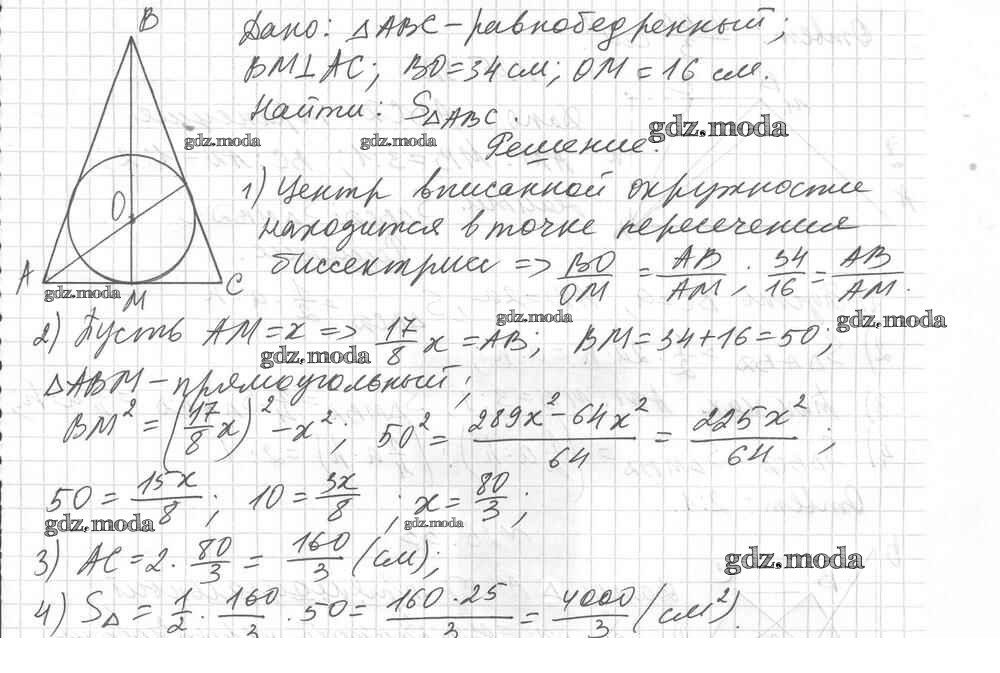 B
Дано: △ABC – равнобедренный;
BM⊥AC; BO = 34 см; OM = 16 см.
Найти: S△ABC.
gdz.moda
gdz.moda
gdz.moda
Решение:
1) Центр вписанной окружности
находится в точке пересечения
биссектрис => BO/OM = AB/AM; 34/16 = AB/AM.
O
A
M
C
gdz.moda
gdz.moda
gdz.moda
2) Пусть AM = x => 17/8 x = AB; BM = 34+16 = 50;
gdz.moda
△ABM – прямоугольный;
BM² = (17/8 x)² - x²; 50² = (289x² - 64x²)/64 = 225x²/64;
50 = 15x/8; 10 = 3x/8; x = 80/3;
gdz.moda
gdz.moda
3) AC = 2 · 80/3 = 160/3 (см);
gdz.moda
4) S△ = 1/2 · 160/3 · 50 = 160·25/3 = 4000/3 (см²).